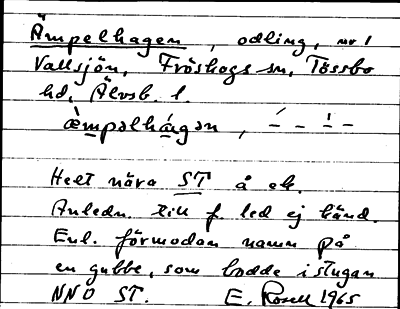 Ämpelhagen, odling, nr 1
Vallsjön, Fröskogs sn, Tössbo
hd, Älvsb. l.
æ̀mpəlhá̱gən, –́ – –̍ –
Helt nära ST å ek.
Anledn. till f. led ej känd.
Enl. förmodan namn på
en gubbe, som bodde i stugan
NNO ST. E. Rosell 1965